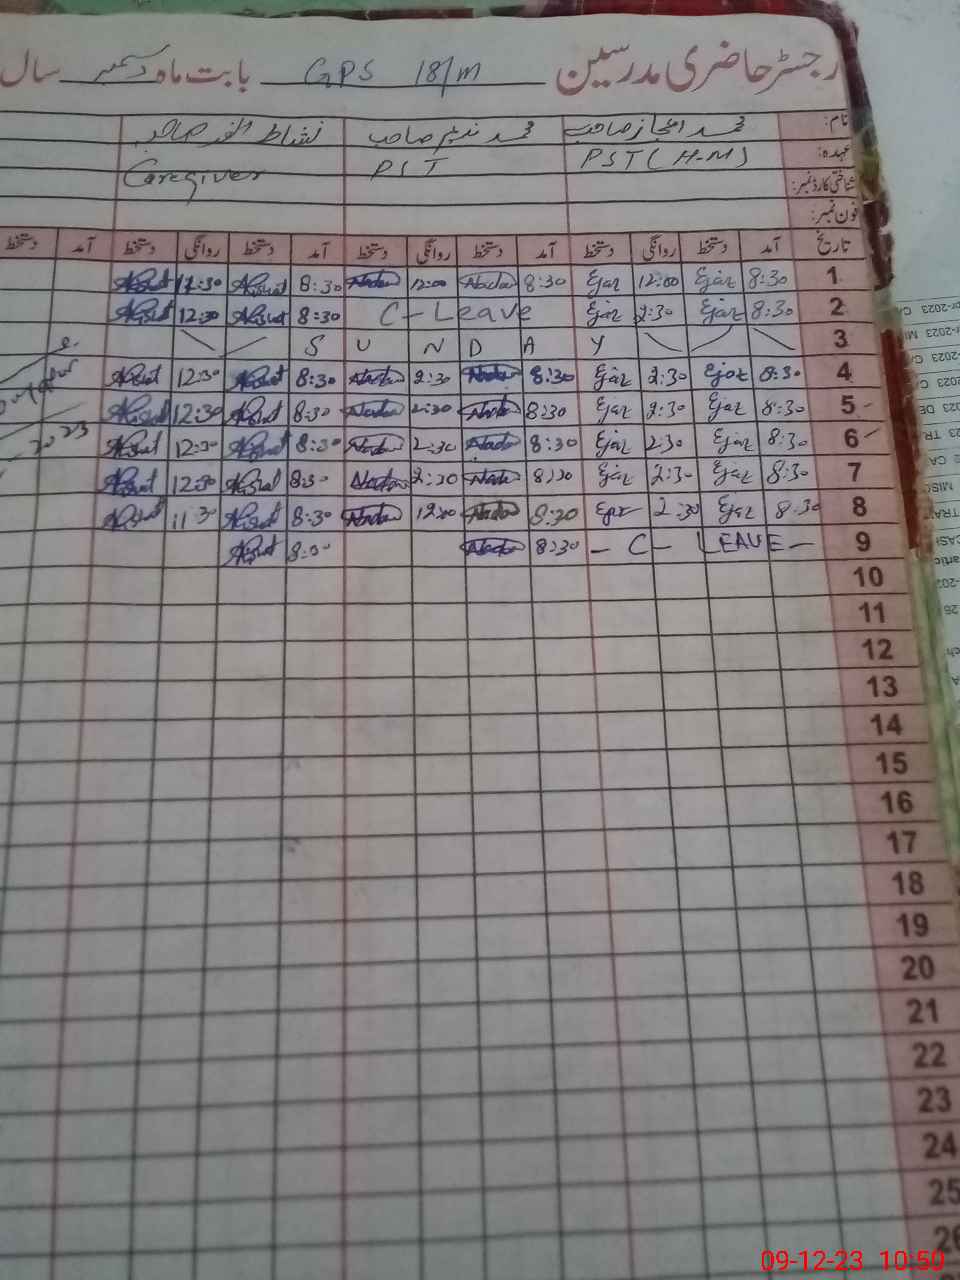 رجسٹر حاضری مدرسین GPS 18/M بابت ماہ دسمبر سال
نام: محمد اعجاز صاحب محمد ندیم صاحب نشاط انور صاحب
عہدہ: PST (H-M) PST Caregiver
شناختی کارڈ نمبر:
فون نمبر:
تاریخ آمد دستخط روانگی دستخط آمد دستخط روانگی دستخط آمد دستخط روانگی دستخط آمد دستخط
1 8:30 Ejaz 12:00 Ejaz 8:30 Nadeem 12:00 Nadeem 8:30 Nishat 12:30 Nishat
2 8:30 Ejaz 2:30 Ejaz C-Leave 8:30 Nishat 12:30 Nishat
3 S U N D A Y
4 8:30 Ejaz 2:30 Ejaz 8:30 2:30 8:30 Nishat 12:30 Nishat
5 8:30 Ejaz 2:30 Ejaz 8:30 2:30 8:30 Nishat 12:30 Nishat
6 8:30 Ejaz 2:30 Ejaz 8:30 2:30 8:30 Nishat 12:30 Nishat
7 8:30 Ejaz 2:30 Ejaz 8:30 2:30 8:30 Nishat 12:30 Nishat
8 8:30 Ejaz 2:30 Ejaz 8:30 12:00 8:30 Nishat 11:30 Nishat
9 - C - LEAVE - 8:30 8:30 Nishat
10
11
12
13
14
15
16
17
18
19
20
21
22
23
24
25
26
2023
09-12-23 10:50